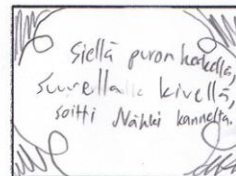 Siellä puron keskellä,
suurella kivellä,
soitti Näkki kannelta.